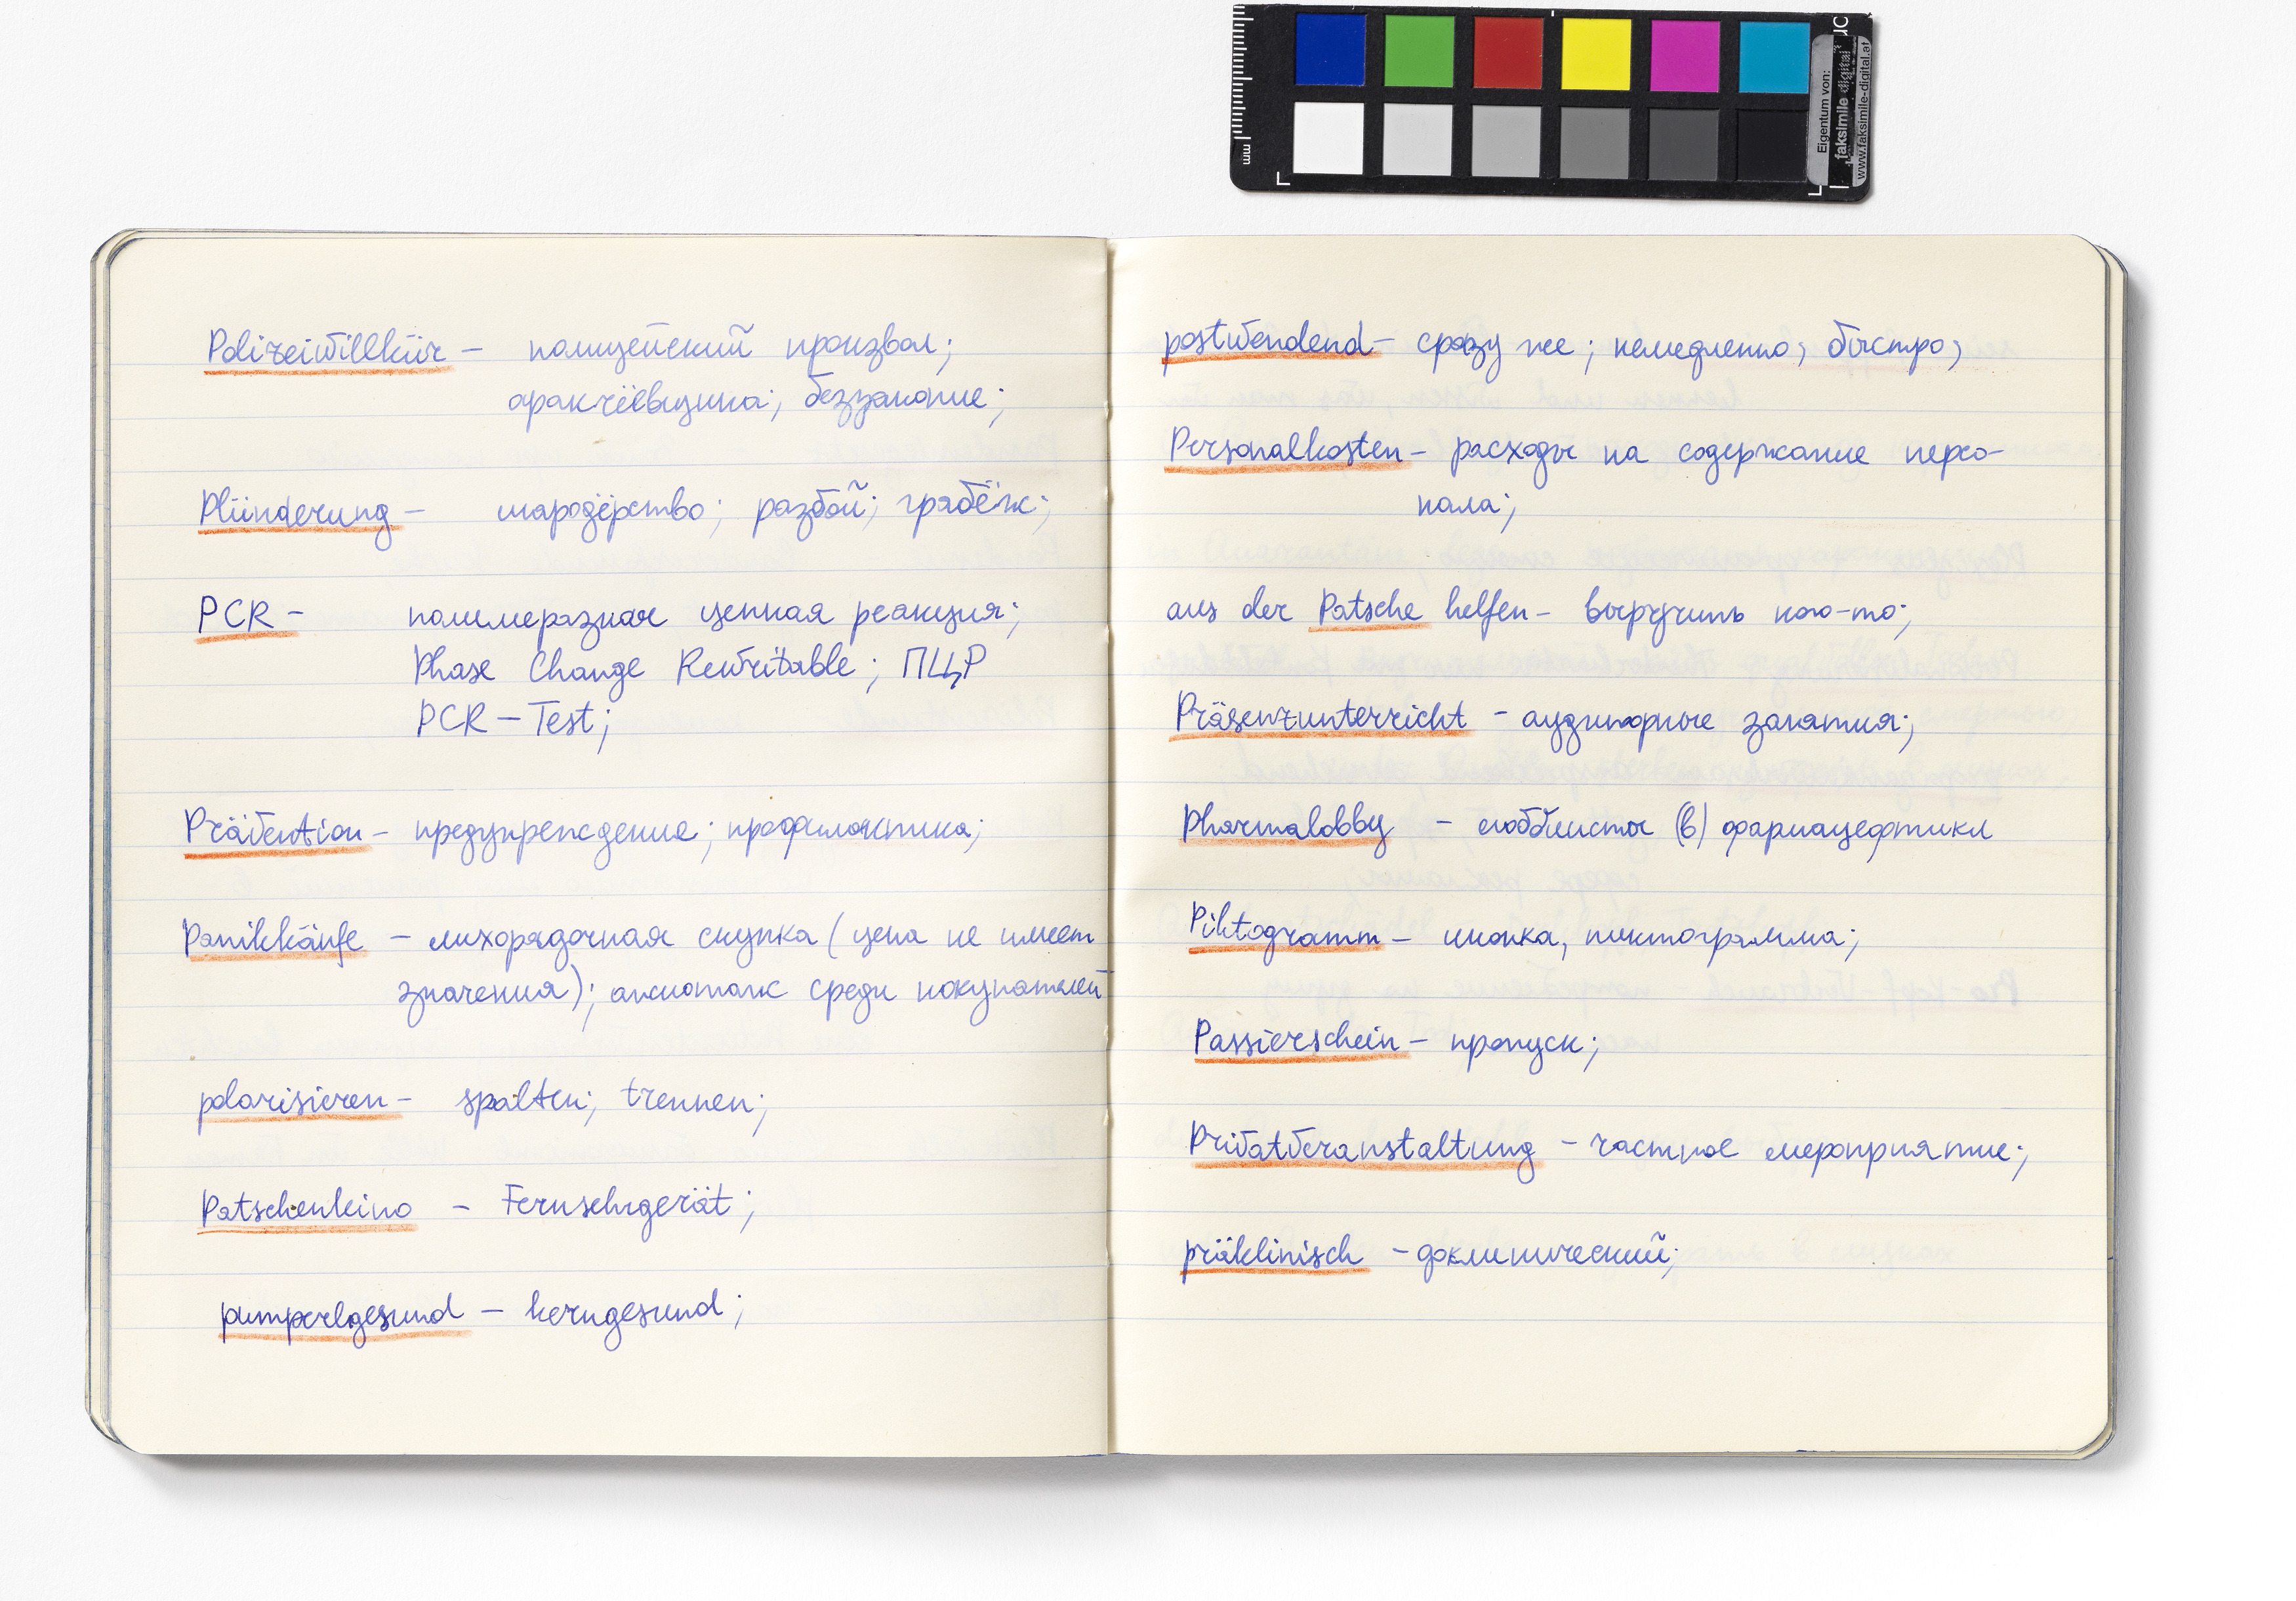 Polizeiwillkür – полицейский произвол;
аракчеевщина; беззаконие;
Plünderung – мародёрство; разбой; грабёж;
PCR – полимеразная цепная реакция;
Phase Change Rewritable; ПЦР
PCR – Test;
Prävention – предупреждение; профилактика;
Panikkäufe – лихорадочная скупка (цена не имеет
значения); ажиотаж среди покупателей
polarisieren – spalten; trennen;
Patschenkino – Fernsehgerät;
pumperlgesund – kerngesund;
postwendend – сразу же; немедленно; быстро;
Personalkosten – расходы на содержание персо-
нала;
aus der Patsche helfen – выручить кого-то;
Präsenzunterricht – аудиторные занятия;
Pharmalobby – лоббисты (в) фармацевтики
Piktogramm – иконка, пиктограмма;
Passierschein – пропуск;
Privatveranstaltung – частное мероприятие;
präklinisch – доклинический;
mm
Eigentum von:
faksimile digital
www.faksimile-digital.at